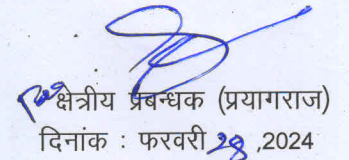 क्षेत्रीय प्रबन्धक (प्रयागराज)
दिनांक : फरवरी 28 ,2024